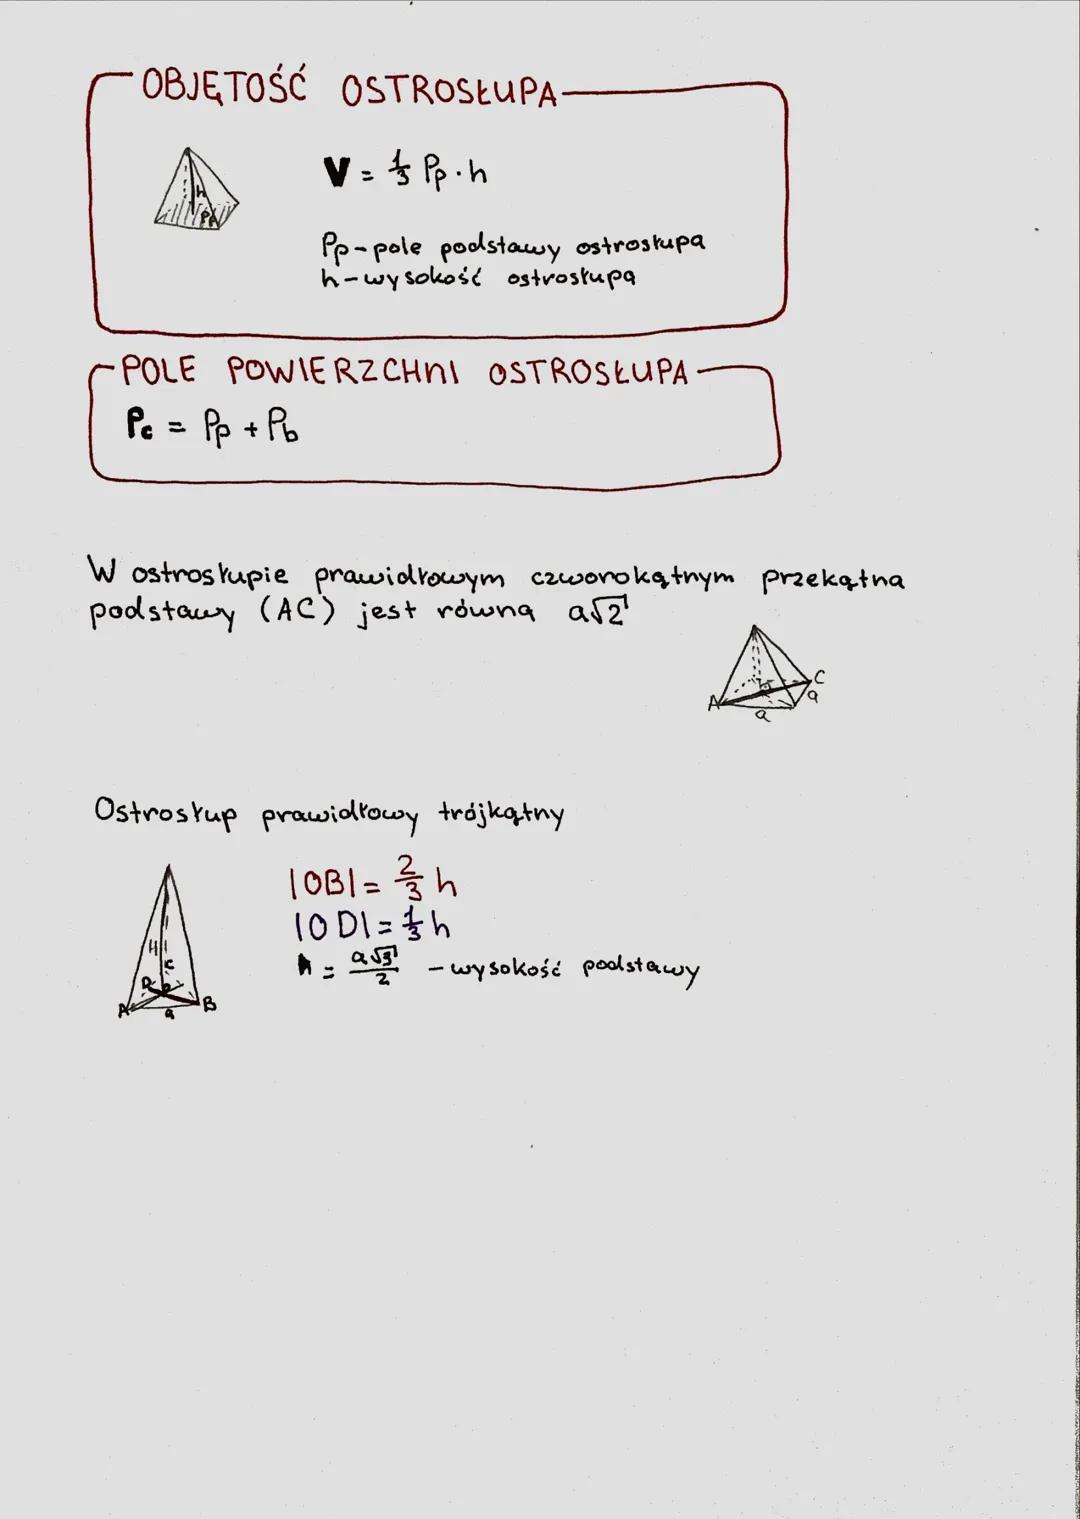 OBJĘTOŚĆ OSTROSŁUPA
V = 1/3 Pp · h
h
Pp
Pp - pole podstawy ostrosłupa
h - wysokość ostrosłupa
POLE POWIERZCHNI OSTROSŁUPA
Pc = Pp + Pb
W ostrosłupie prawidłowym czworokątnym przekątna
podstawy (AC) jest równa a√2
A
C
a
a
Ostrosłup prawidłowy trójkątny
|OB| = 2/3 h
|OD| = 1/3 h
h = a√3/2 - wysokość podstawy
H
C
D
A
B
a